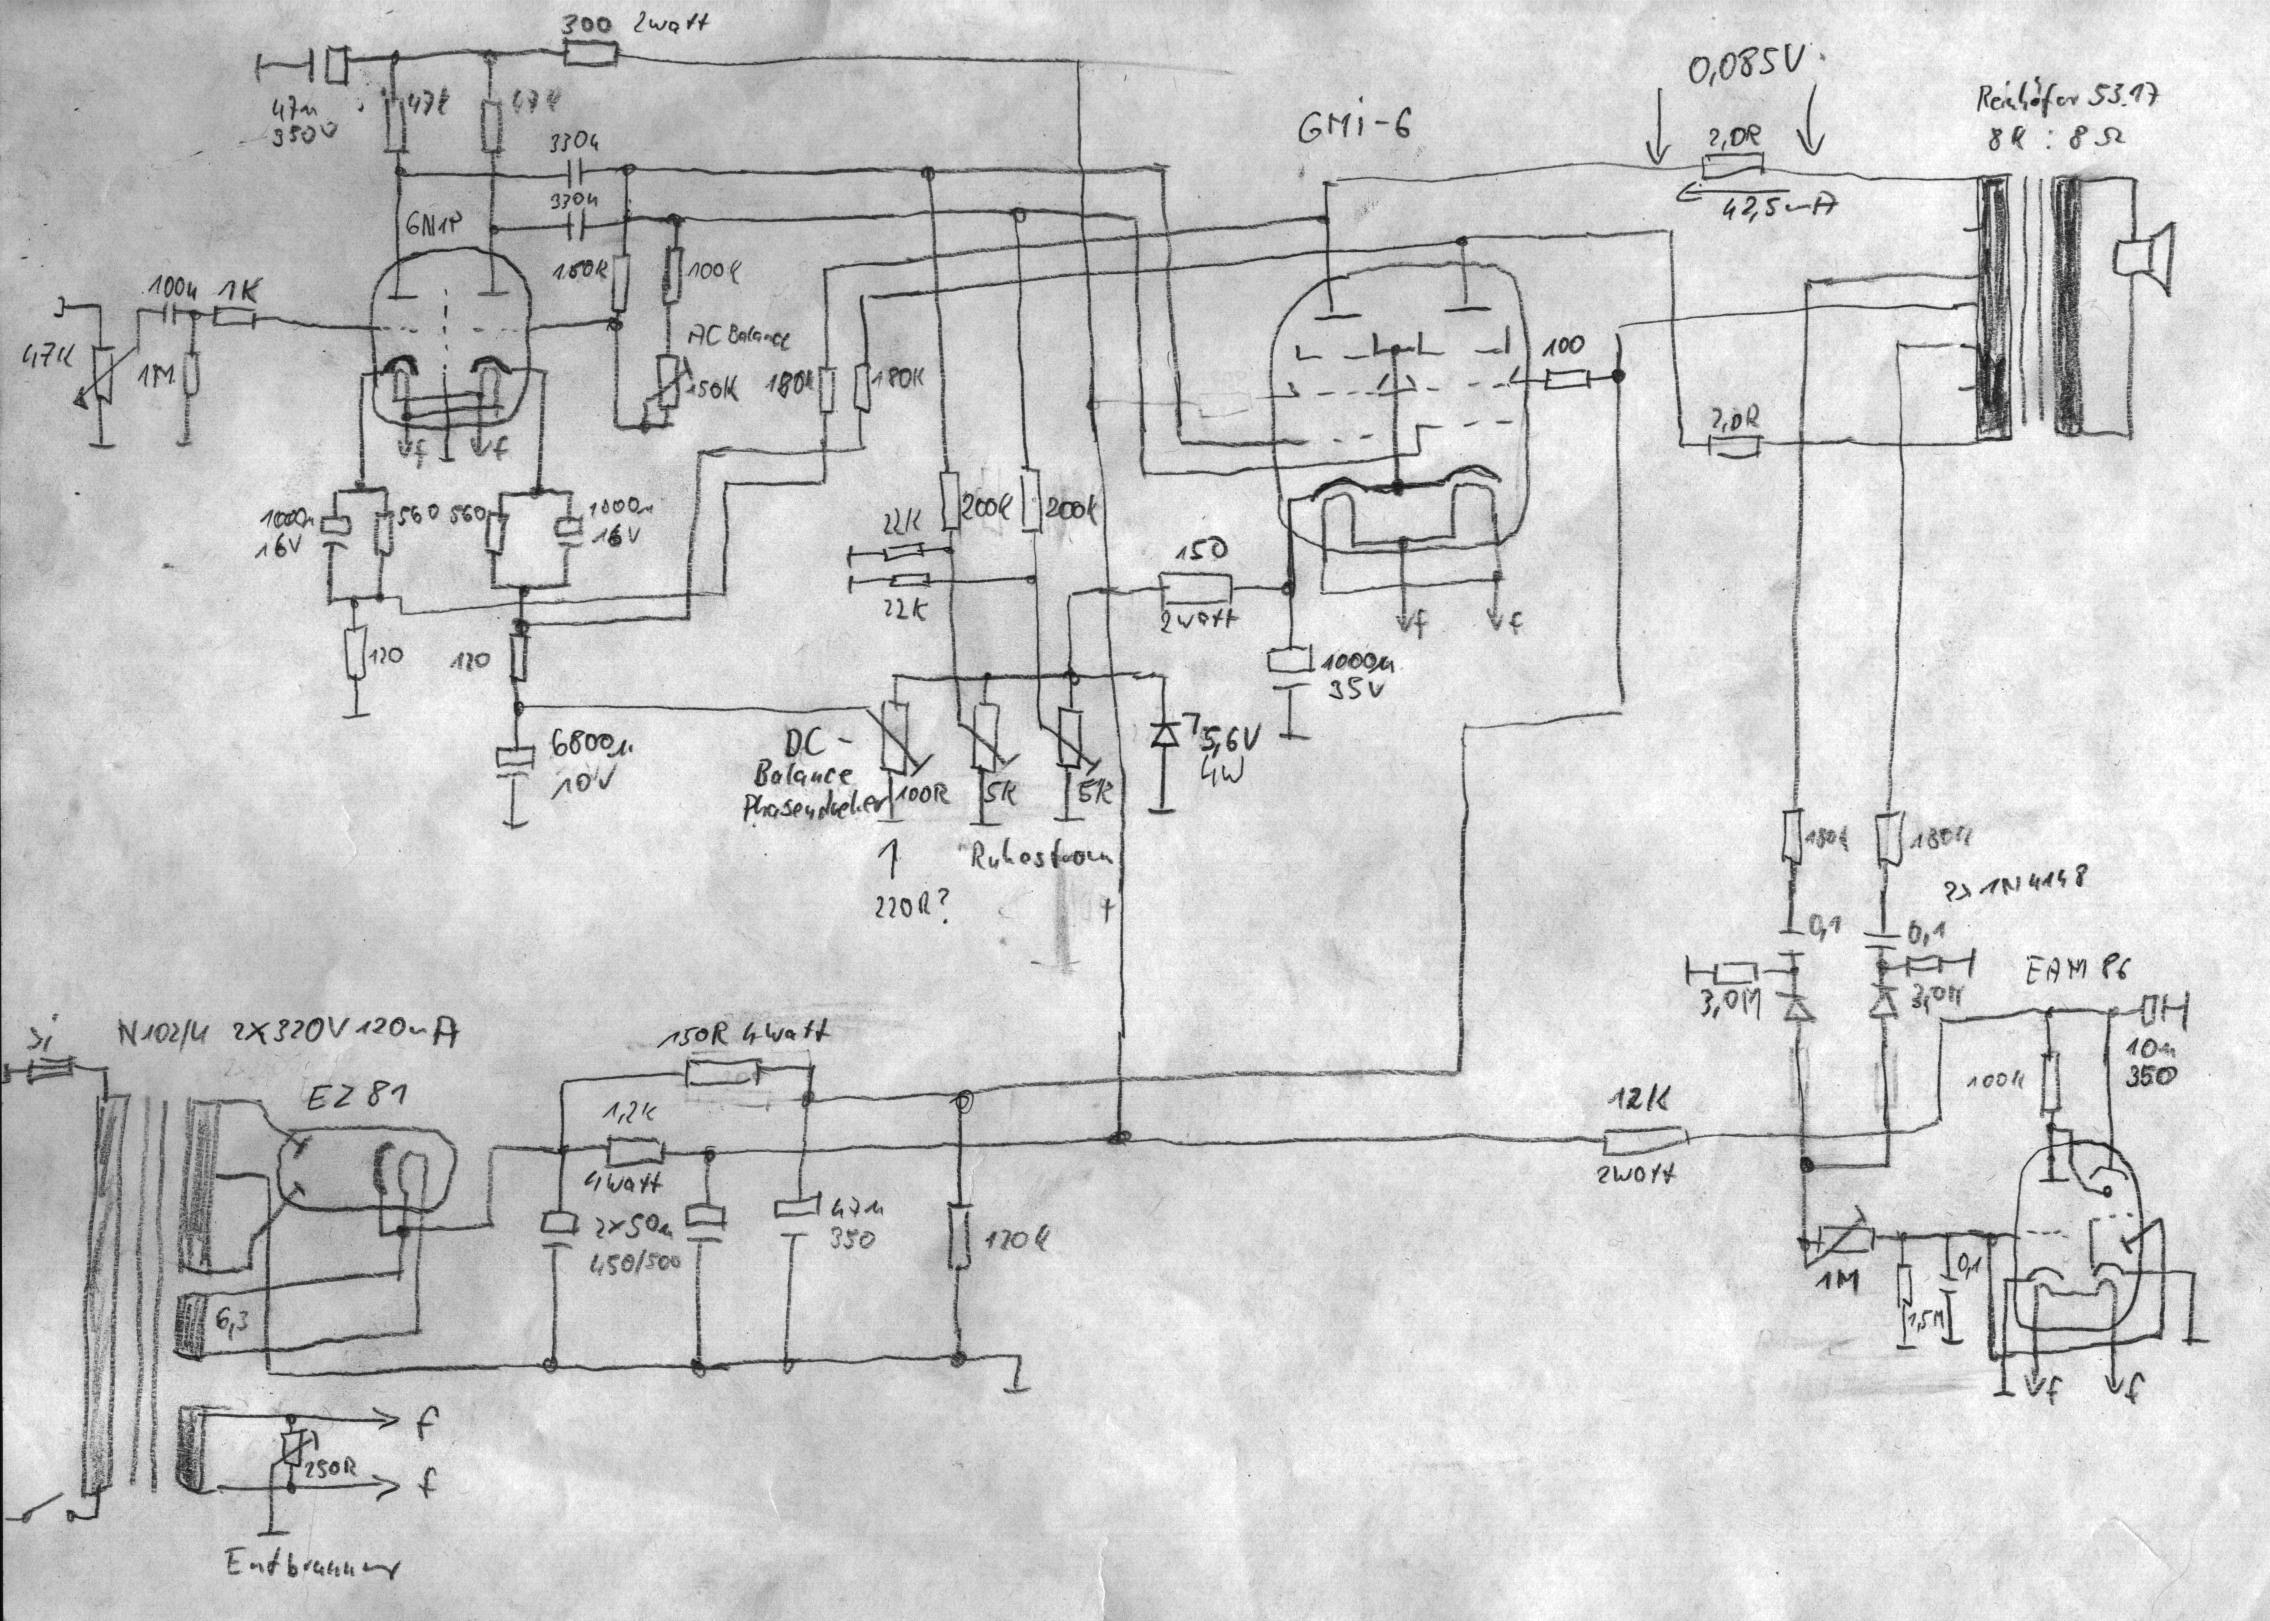 300 2watt
47µ
350V
47k
47k
330n
330n
6N1P
GMi-6
0,085V
2,0R
42,5mA
Reinhöfer 53.17
8K : 8 Ω
100n
1K
47K
1M
150K
100k
AC Balance
150K
180k
180K
100
2,0R
f
f
1000µ
16V
560
560
1000µ
16V
22K
22K
200k
200k
150
2watt
f
f
120
120
1000µ
35V
6800µ
10V
DC-
Balance
Phasendreher
100R
5K
5K
5,6V
4W
220R?
Ruhestrom
+
180k
180K
2x 1N4148
0,1
0,1
3,0M
3,0M
EAM 86
10µ
350
100k
Si
N102/U 2X320V 120mA
EZ 81
150R 4watt
1,2K
4watt
12K
2watt
2x50µ
450/500
47µ
350
120k
6,3
1M
1,5M
0,1
f
f
f
250R
f
Entbrummer